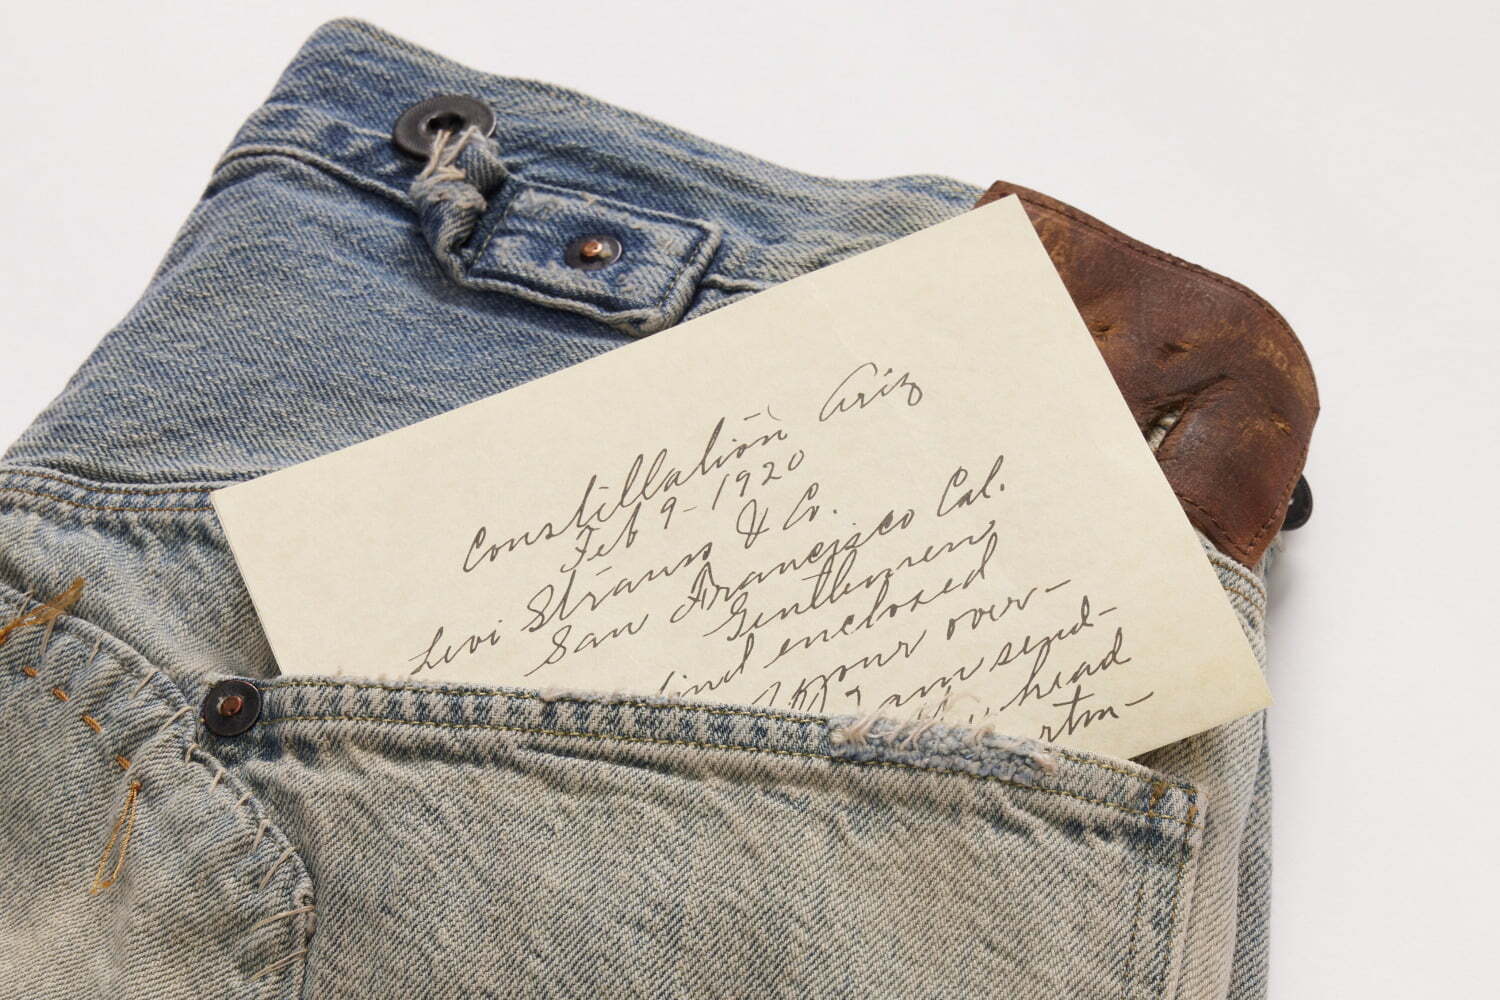 Constillation Ariz
Feb 9-1920
Levi Strauss & Co.
San Francisco Cal.
Gentlemens
ind enclosed
your over-
I am send-
head
rtm-